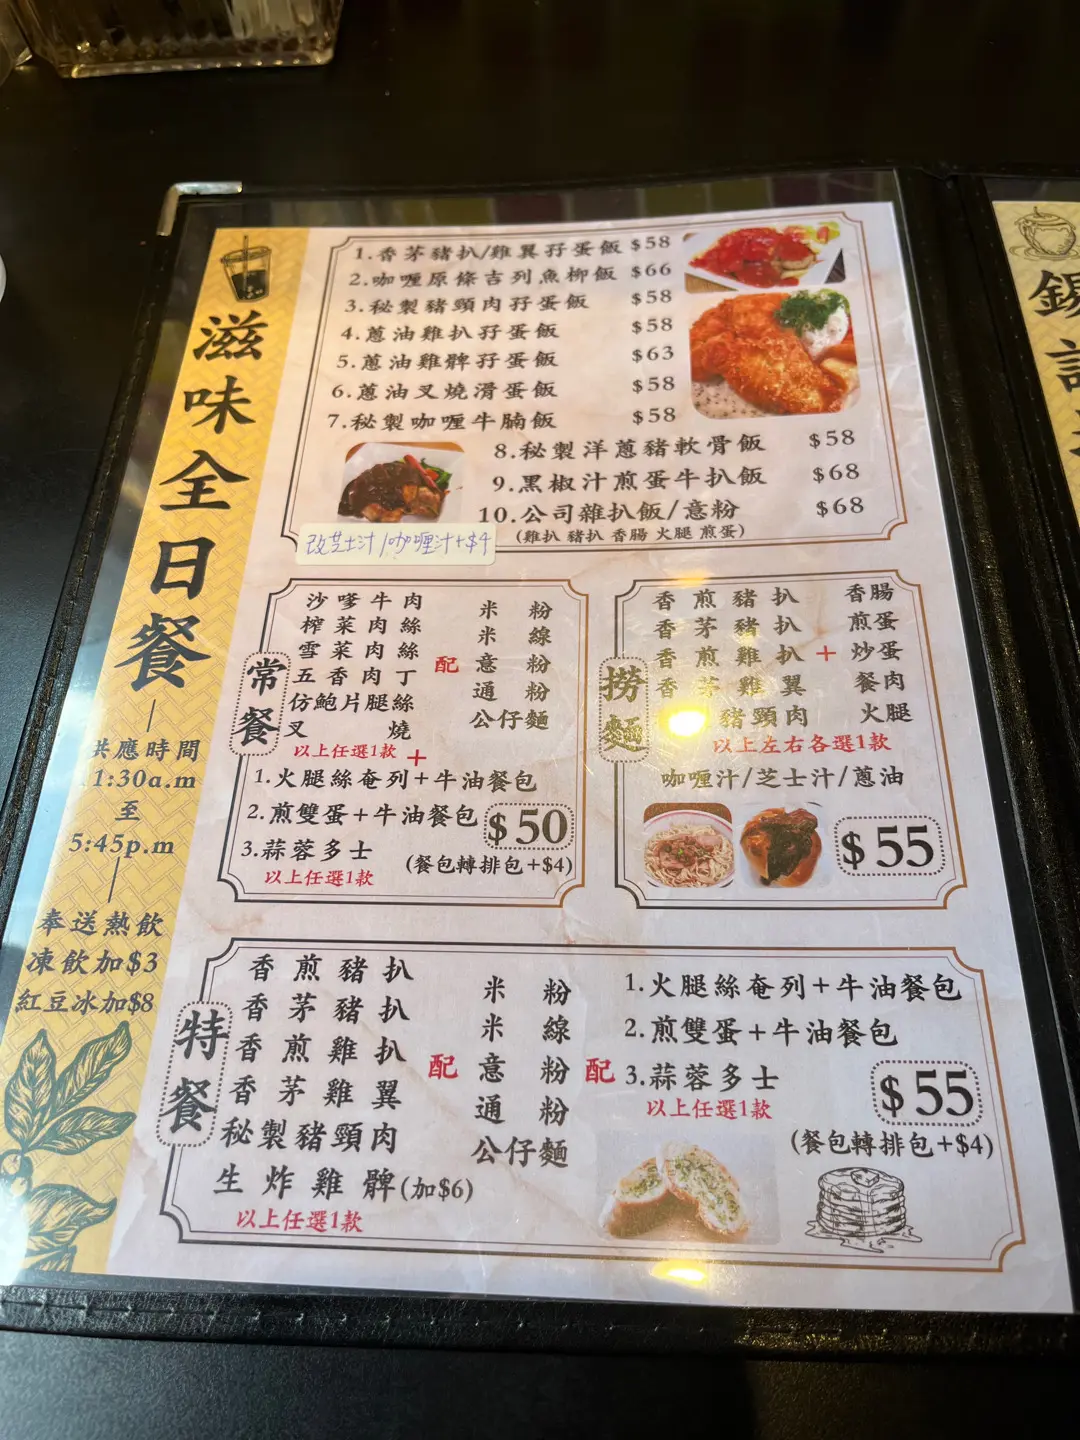 滋味全日餐
供應時間
11:30a.m
至
5:45p.m
奉送熱飲
凍飲加$3
紅豆冰加$8
1.香茅豬扒/雞翼孖蛋飯 $58
2.咖喱原條吉列魚柳飯 $66
3.秘製豬頸肉孖蛋飯 $58
4.蔥油雞扒孖蛋飯 $58
5.蔥油雞髀孖蛋飯 $63
6.蔥油叉燒滑蛋飯 $58
7.秘製咖喱牛腩飯 $58
8.秘製洋蔥豬軟骨飯 $58
9.黑椒汁煎蛋牛扒飯 $68
10.公司雜扒飯/意粉 $68
(雞扒 豬扒 香腸 火腿 煎蛋)
改芝士汁/咖喱汁+$4
常餐
沙嗲牛肉
榨菜肉絲
雪菜肉絲
五香肉丁
仿鮑片腿絲
叉燒
以上任選1款
配
米粉
米線
意粉
通粉
公仔麵
+
1.火腿絲奄列+牛油餐包
2.煎雙蛋+牛油餐包
3.蒜蓉多士
以上任選1款
$50
(餐包轉排包+$4)
撈麵
香煎豬扒
香茅豬扒
香煎雞扒
香茅雞翼
豬頸肉
+
香腸
煎蛋
炒蛋
餐肉
火腿
以上左右各選1款
咖喱汁/芝士汁/蔥油
$55
特餐
香煎豬扒
香茅豬扒
香煎雞扒
香茅雞翼
秘製豬頸肉
生炸雞髀(加$6)
以上任選1款
配
米粉
米線
意粉
通粉
公仔麵
配
1.火腿絲奄列+牛油餐包
2.煎雙蛋+牛油餐包
3.蒜蓉多士
以上任選1款
$55
(餐包轉排包+$4)